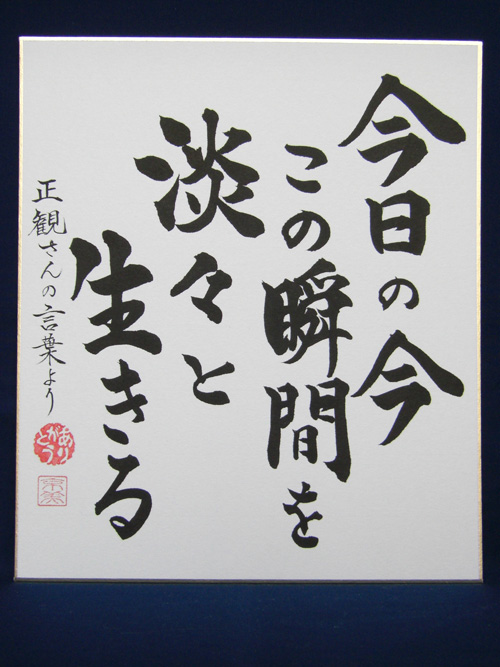 今日の今
この瞬間を
淡々と
生きる
正観さんの言葉より
ありがとう